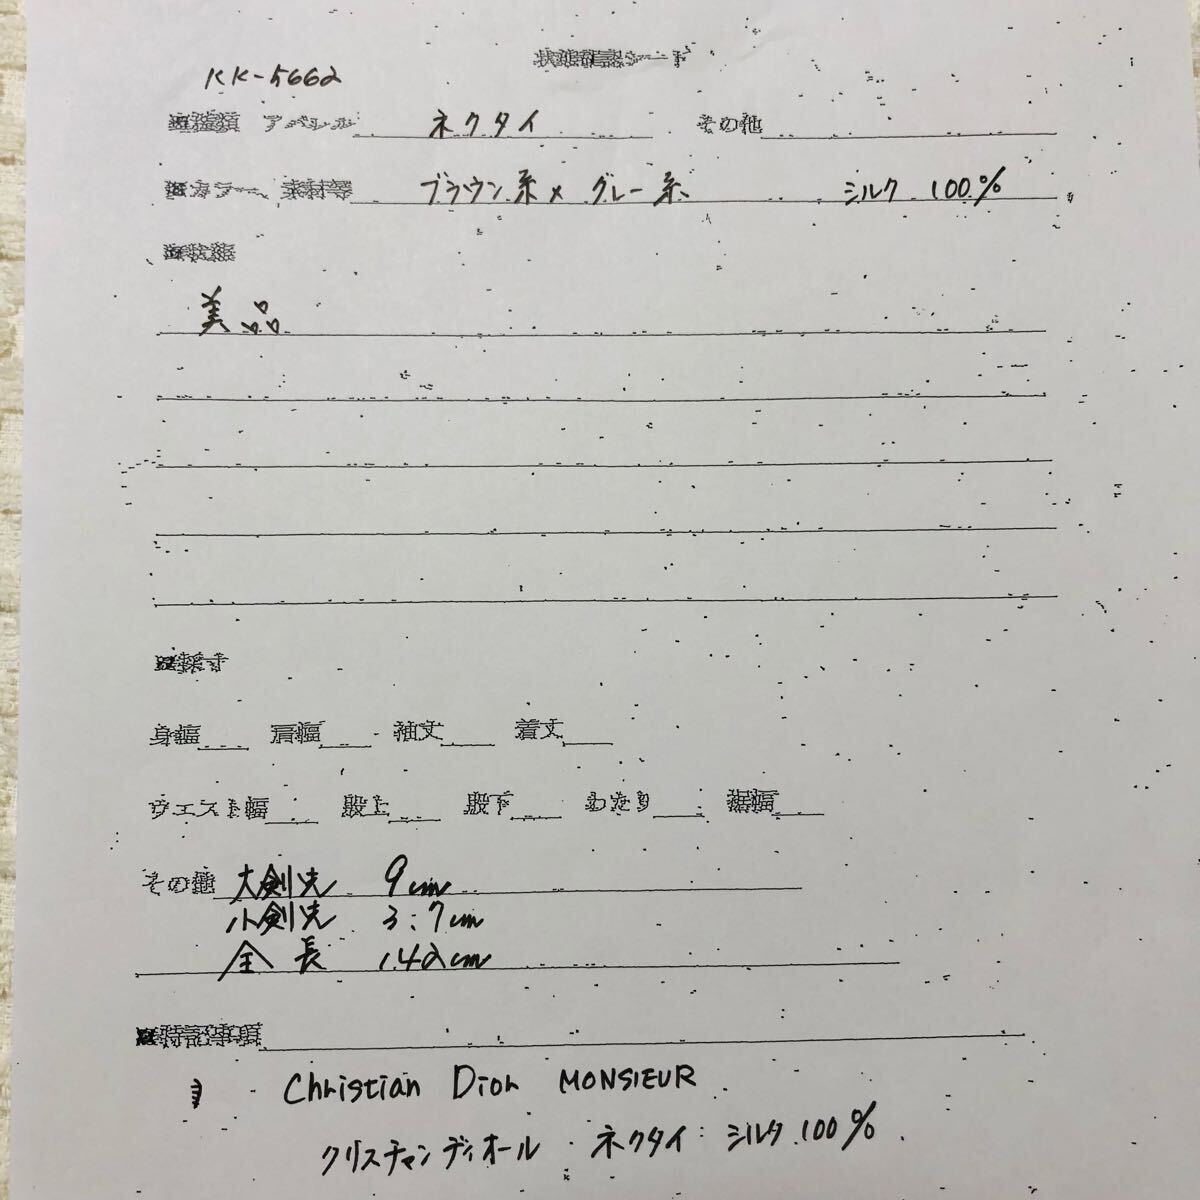 状態確認シート
KK-5662
■種類 アパレル ネクタイ その他
■カラー、素材等 ブラウン系×グレー系 シルク 100%
■状態
美品
■採寸
身幅 肩幅 袖丈 着丈
ウエスト幅 股上 股下 わたり 裾幅
その他 大剣先 9cm
小剣先 3.7cm
全長 142cm
■特記事項
Christian Dior MONSIEUR
クリスチャンディオール ネクタイ シルク 100%